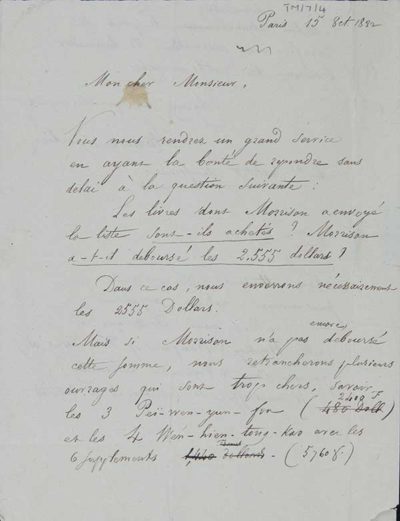 TM/7/4
Paris 15 Oct 1882
Mon cher Monsieur,
Vous nous rendrez un grand service
en ayant la bonté de repondre sans
délai à la question suivante :
Les livres dont Morrison a envoyé
la liste sont-ils achetés ? Morrison
a-t-il deboursé les 2.555 dollars ?
Dans ce cas, nous enverrons nécessairement
les 2555 Dollars.
encore
Mais si Morrison n'a pas deboursé
cette somme, nous retrancherons plusieurs
ouvrages qui sont trop chers, savoir
2400 F.
les 3 Pei-wen-yun-fou ( 480 Doll )
et les 4 Wén-hien-tong-kao avec les
6 supplements 1,440 dollars - (5760 f. -)